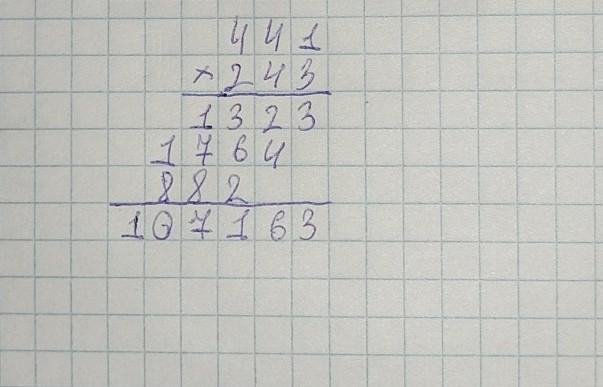 441
×243
1323
1764
882
107163